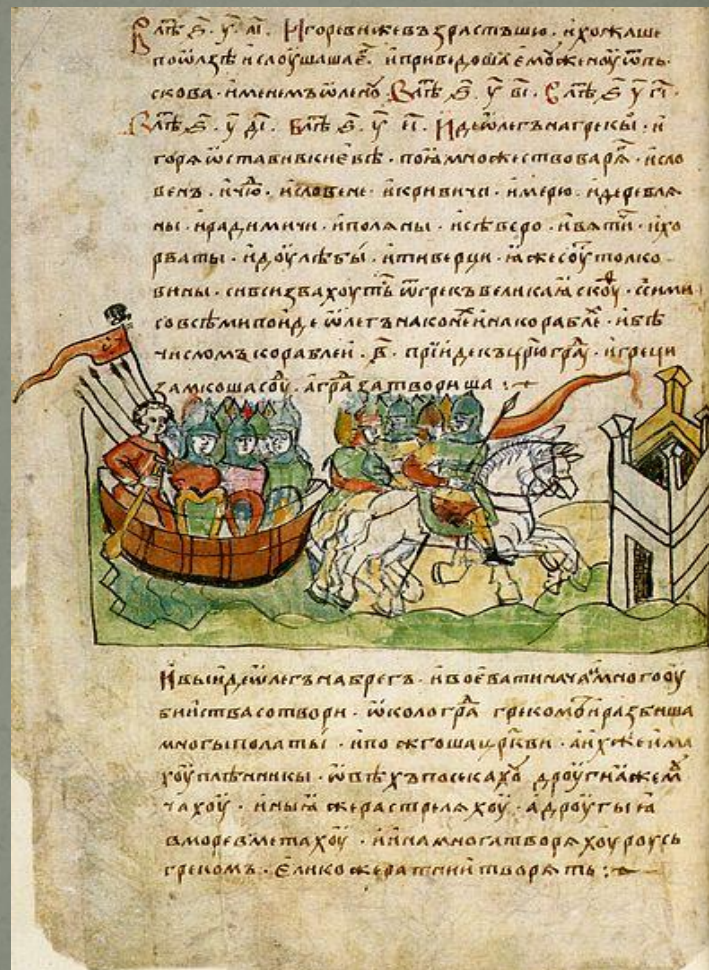 В лѣт҃ѣ ѕ҃. у҃. аі҃. Игоревижевъзрастъшю. ихожаше
поѡлзѣ ислоушаше҃. иприведошаꙗ емоу женоу ѿпь
скова. именемъѡленоу В лѣт҃ѣ ѕ҃. у҃ ві҃. В лѣт҃ѣ ѕ҃ у҃ гі҃.
В лѣт҃ѣ ѕ҃. у҃ ді҃. В лѣт҃ѣ ѕ҃. у҃ еі҃. Идеѡлегънагрекы. и
горѧѡставивкиевѣ. поꙗмножествоварѧ҃. исло
венъ. ичю҃. исловене. икривичи. имерю. идеревлѧ
ны. ирадимичи. иполѧны. исѣверо. ивѧти҃. ихо
рваты. идоулѣбы. итиверци. ꙗжесоутолко
вины. сивсизвахоуть ѿгрекъ великаꙗ скоу҃. ссими
совсѣмипоиде ѡлегънаконе҃инакорабле҃. ибѣ
числомъкораблеи. в҃. прїидекъцр҃югра҃. игреци
замкошасоу҃. агра҃затвориша
Ивыидеѡлегънабрегъ. ивоеватиначамногооу
бииствасотвори. ѡкологра҃ грекомъиразбиша
многыполаты. ипожгошацр҃кви. аихжеима
хоуплѣнникы. ѡвѣхъпосекахоу дроугиꙗжемꙋ
чахоу. иныꙗжерастрелѧхоу. адроугыꙗ
вморевметахоу. иинамноготворѧхоуроусь
грекомъ. еликожератниитворѧть